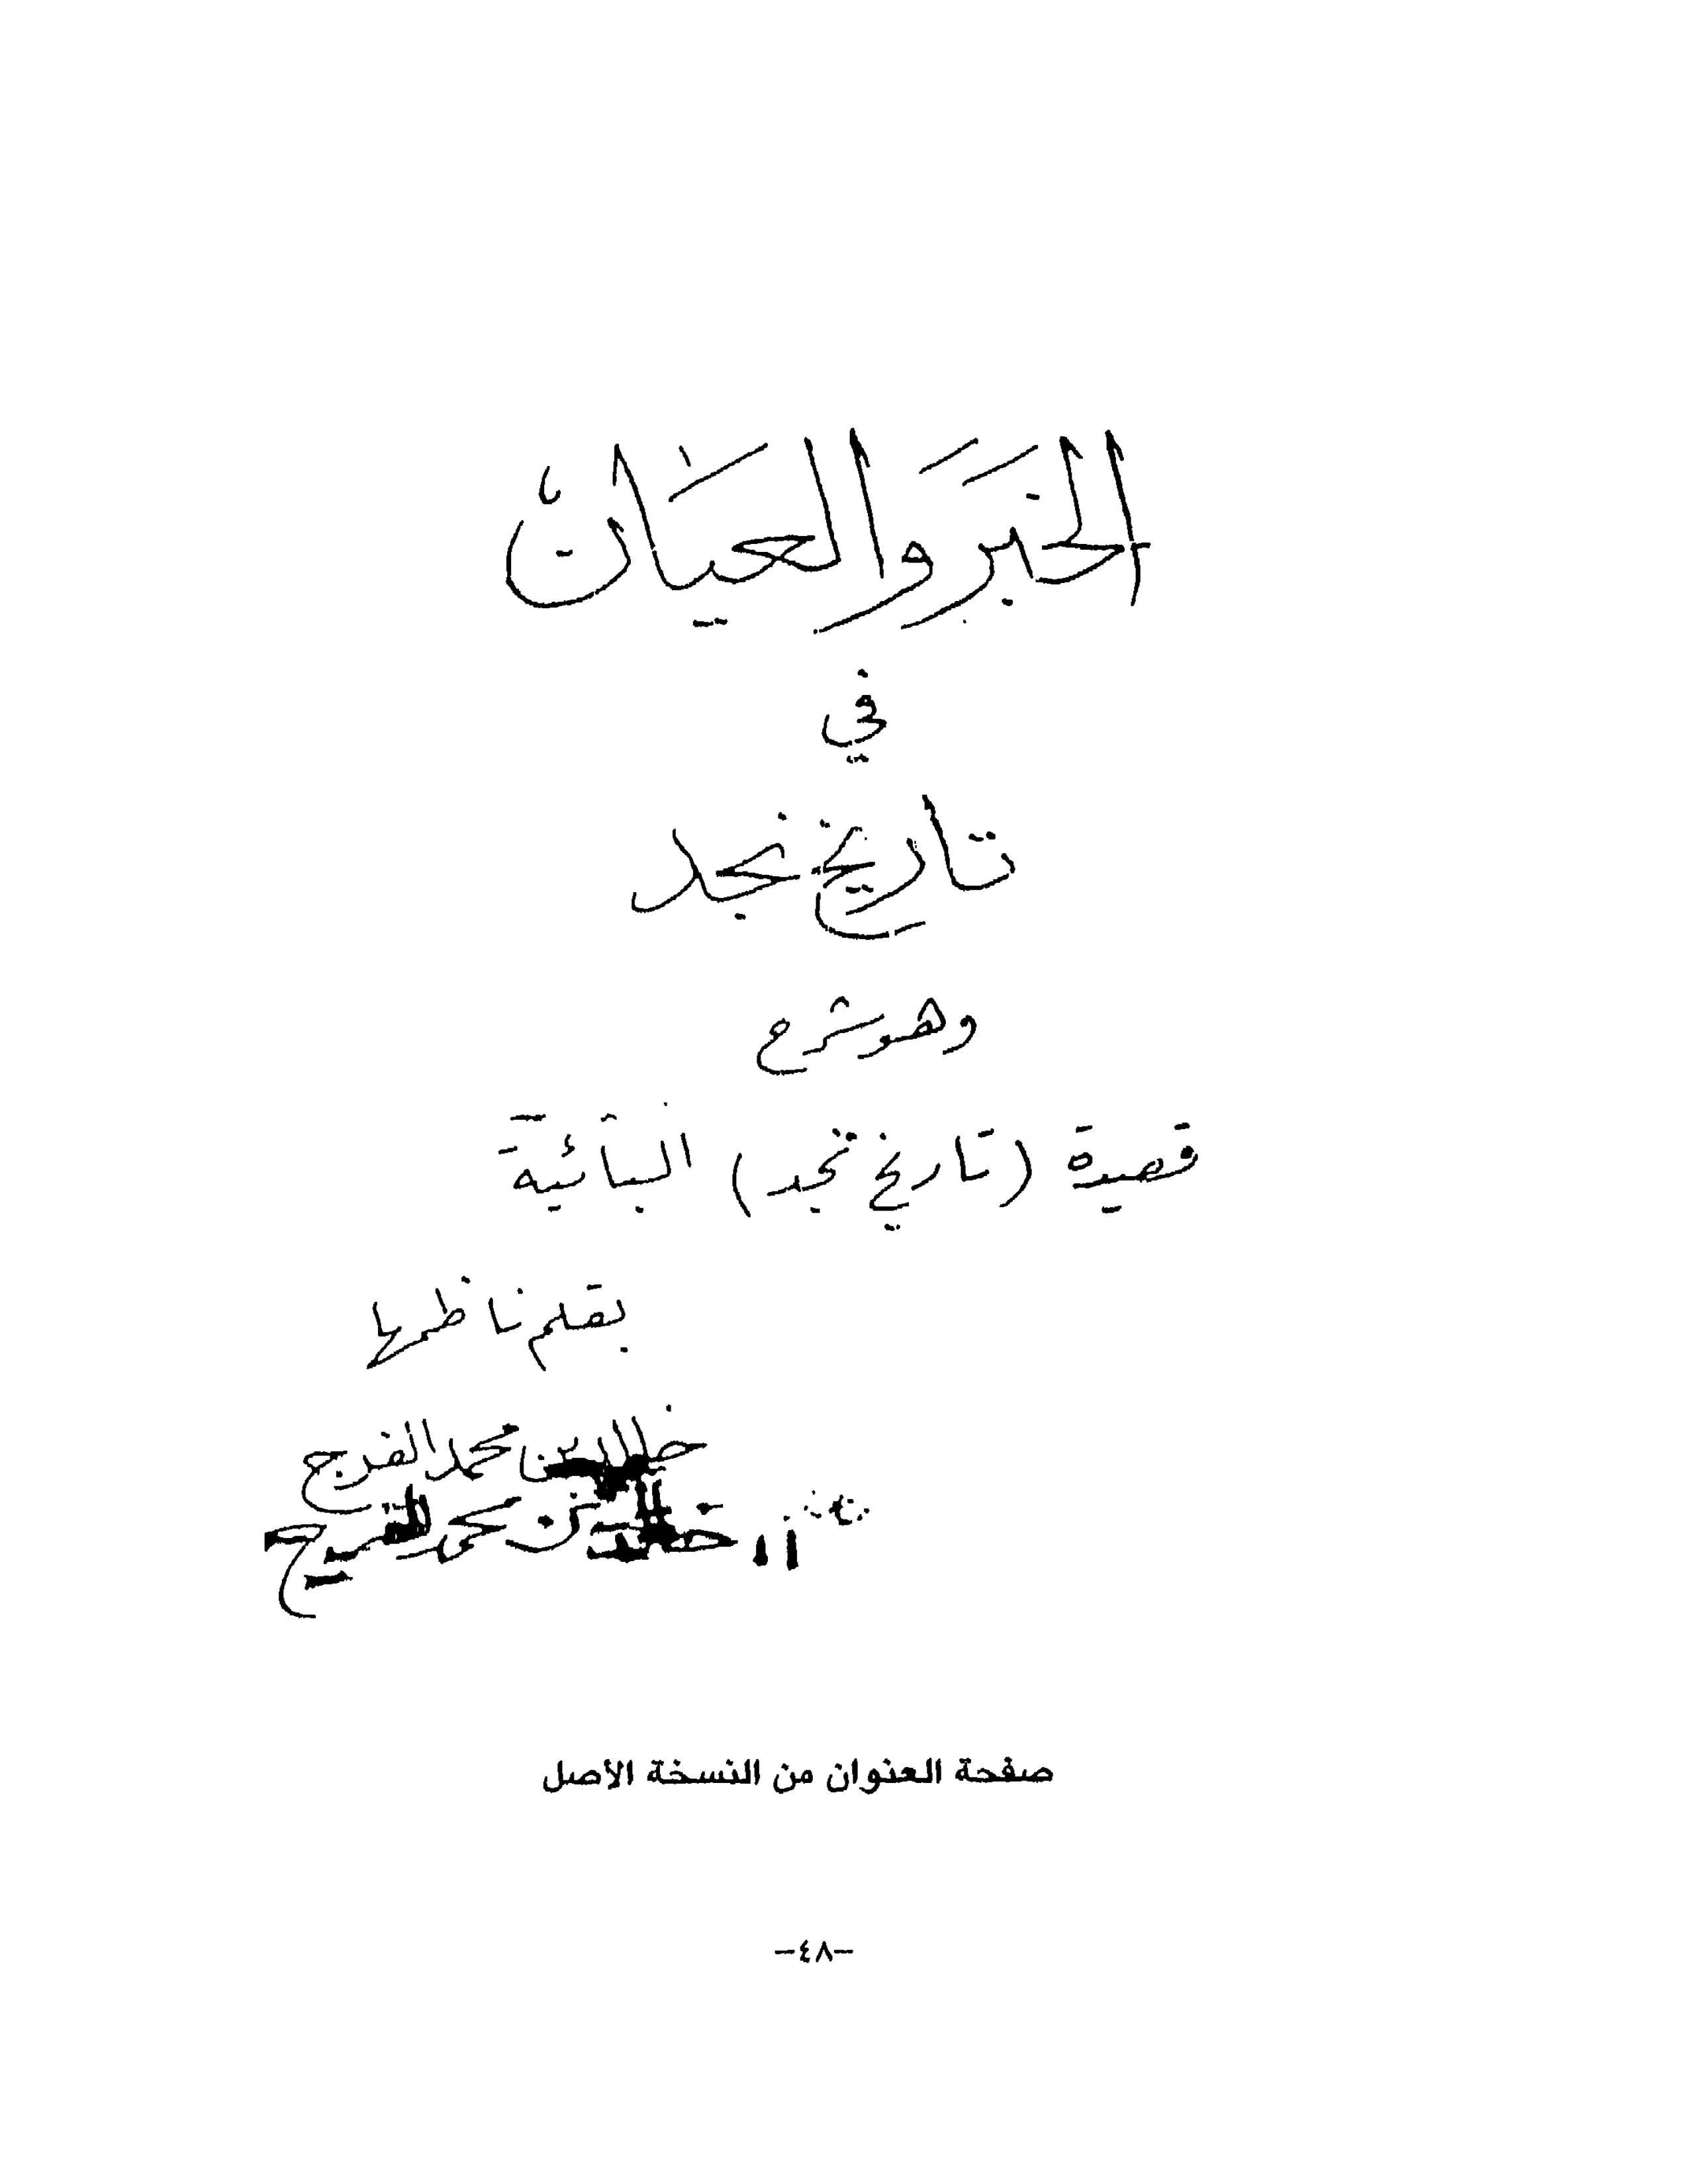 الخبَر وَالعيَان
في
تاريخ نجد
وهو شرح
قصيدة (تاريخ نجد) البائية
بقلم ناظمها
خالد بن محمد الفرج
خالد بن محمد الفرج
صفحة العنوان من النسخة الأصل
-٤٨-